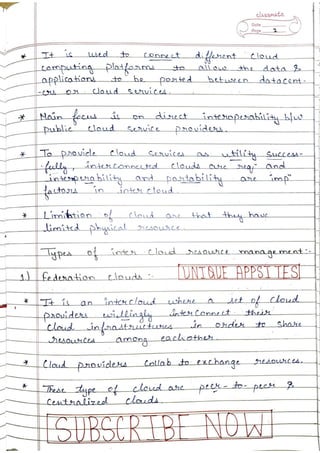 classmate
Date
Page 2
* It is used to connect different cloud
computing platforms to allow the data &
applications to be ported between datacent-
-ers or cloud services.
* Main focus is on direct interoperability b/w
public cloud service providers.
* To provide cloud services as utility success-
fully, interconnected clouds are req and
interoperability and portability are imp
factors in inter cloud.
* Limitation of cloud are that they have
limited physical resource.
Types of inter cloud resource management:-
1.) Federation clouds :-
UNIQUE APPSITES
* It is an intercloud where a set of cloud
providers willingly interconnect their
cloud infrastructures in order to share
resources among eachother.
* Cloud providers collab to exchange resources.
* These type of cloud are peer-to-peer &
centralized clouds.
SUBSCRIBE NOW